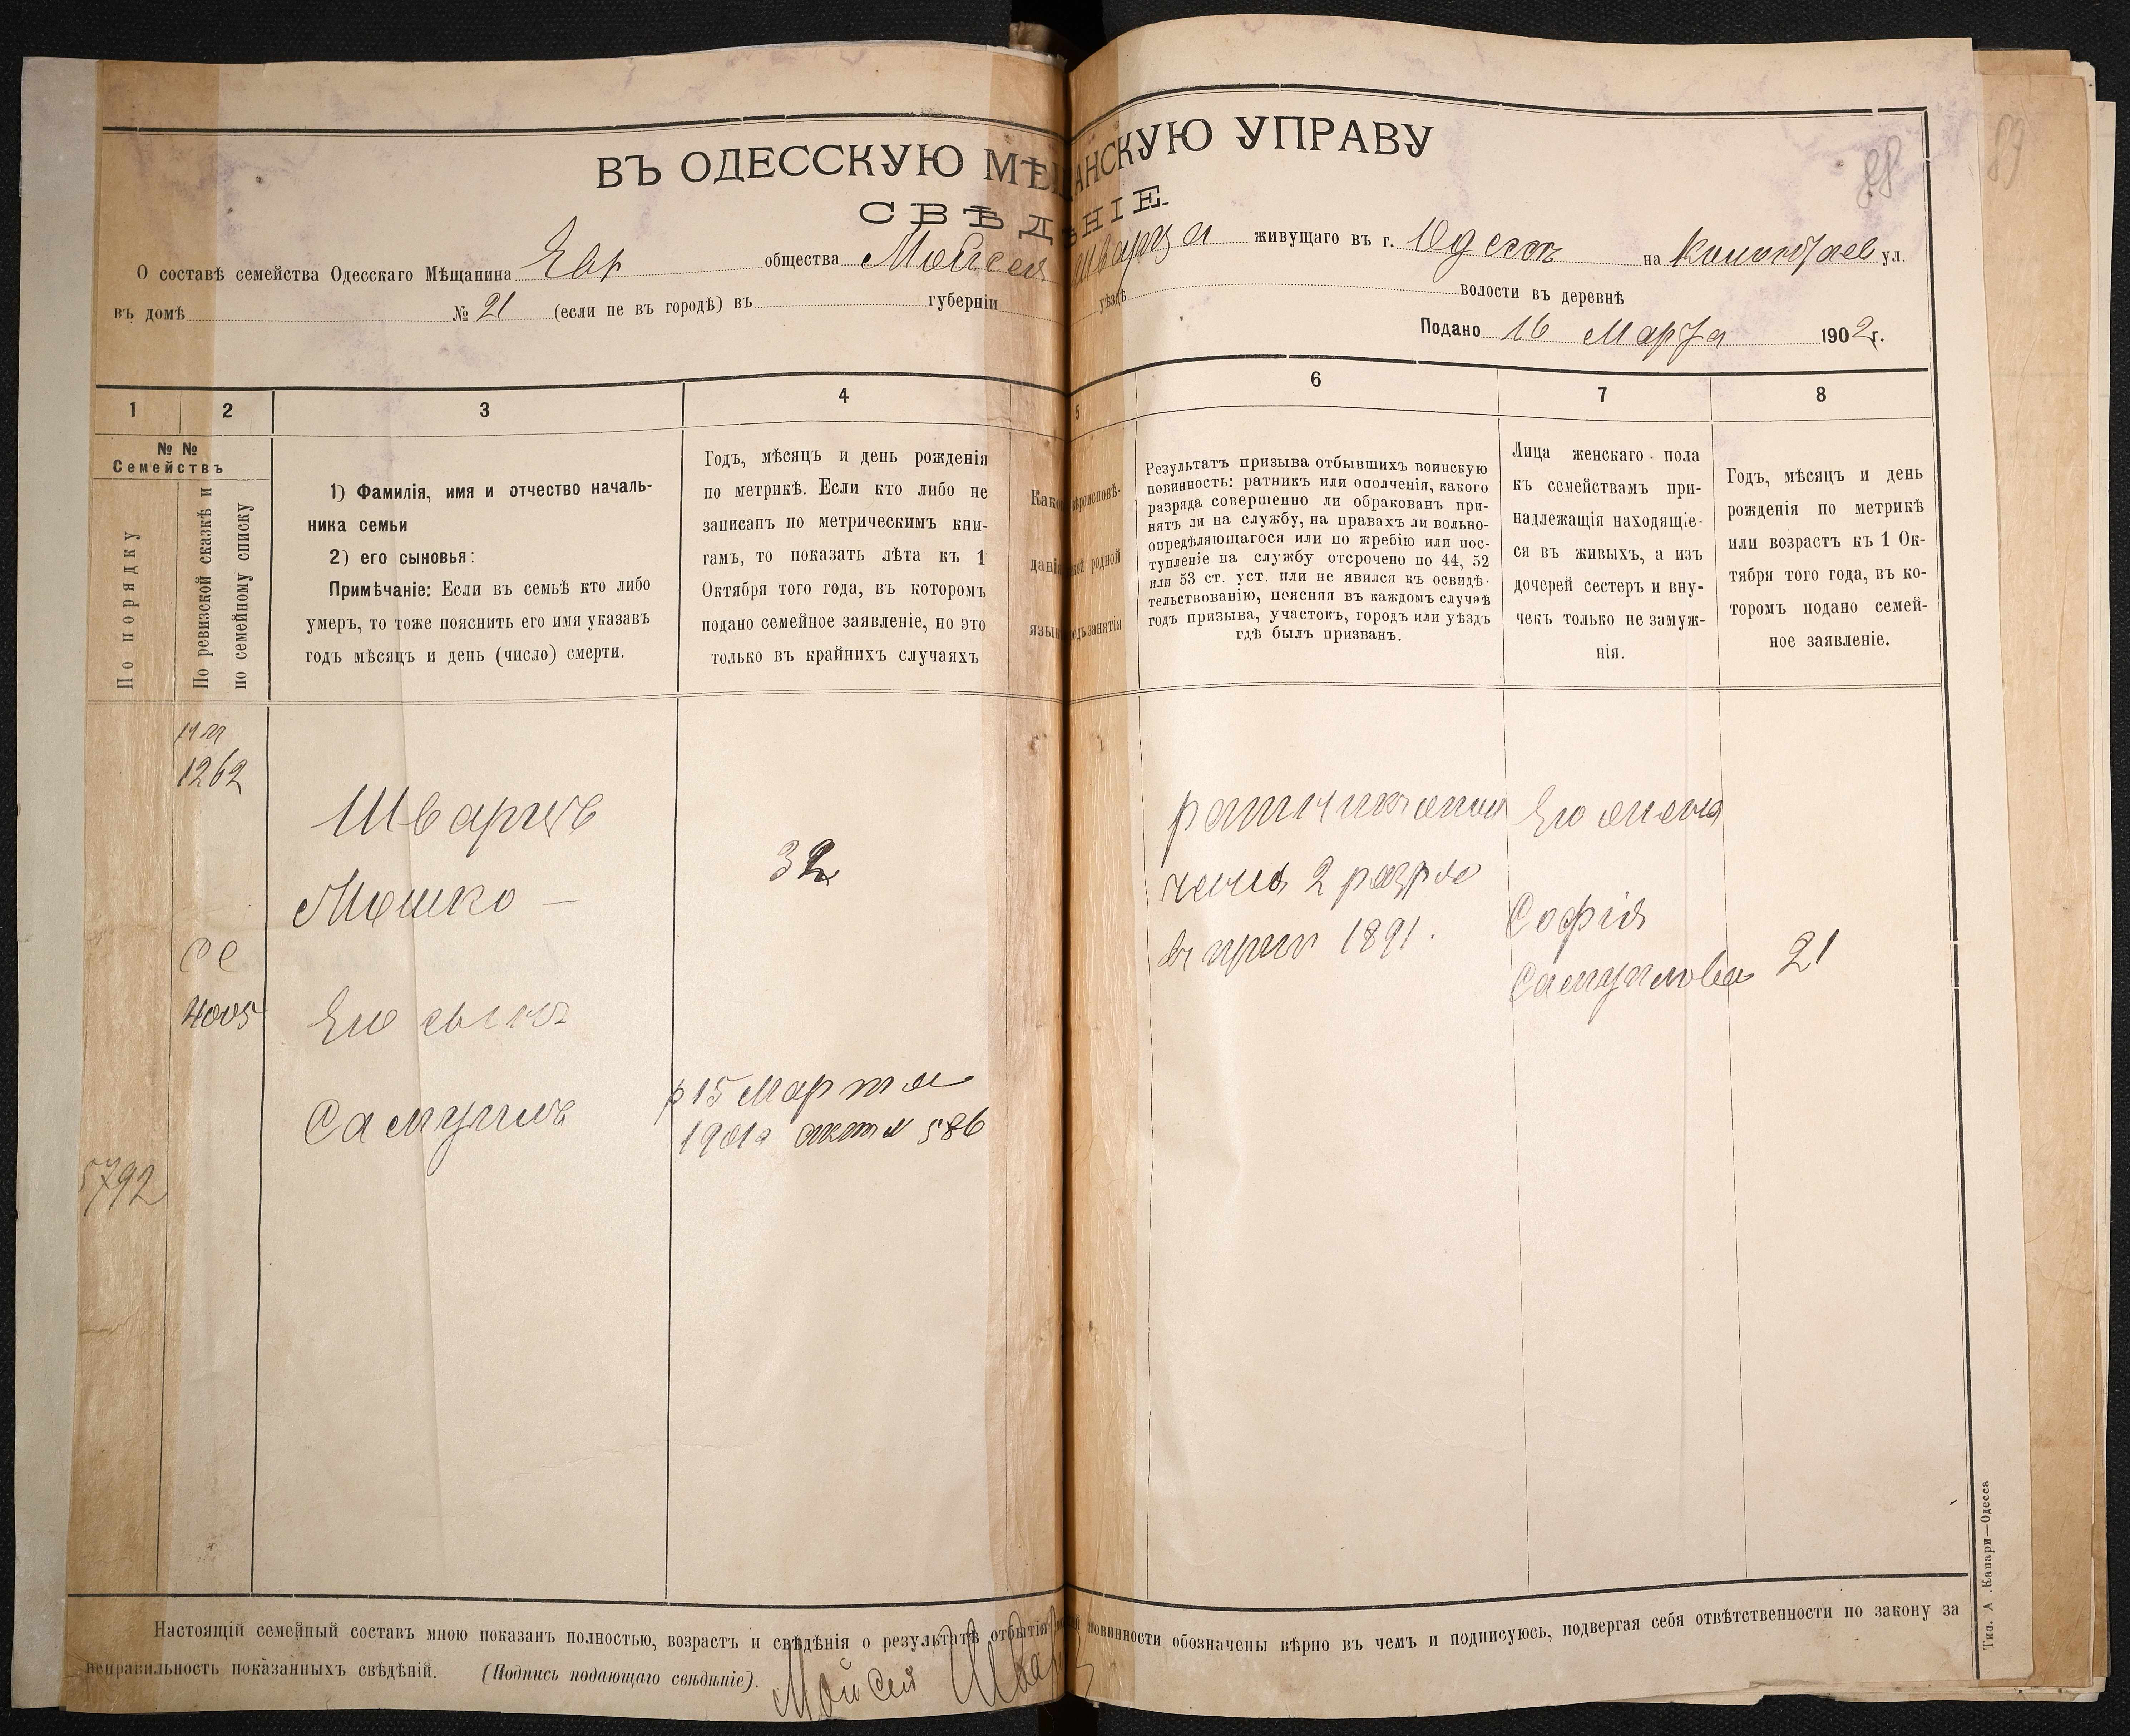 ВЪ ОДЕССКУЮ МѢЩАНСКУЮ УПРАВУ
СВѢДѢНІЕ.
88
89
О составѣ семейства Одесскаго Мѣщанина Евр общества Мойсея Шварца живущаго въ г. Одессѣ на ул.
въ домѣ № 21 (если не въ городѣ) въ губерніи уѣздѣ волости въ деревнѣ
Подано 16 Марта 1902 г.
1 2 3 4 5 6 7 8
№ №
Семействъ
По порядку
По ревизской сказкѣ и
по семейному списку
1) Фамилія, имя и отчество началь-
ника семьи
2) его сыновья:
Примѣчаніе: Если въ семьѣ кто либо
умеръ, то тоже пояснить его имя указавъ
годъ мѣсяцъ и день (число) смерти.
Годъ, мѣсяцъ и день рожденія
по метрикѣ. Если кто либо не
записанъ по метрическимъ кни-
гамъ, то показать лѣта къ 1
Октября того года, въ которомъ
подано семейное заявленіе, но это
только въ крайнихъ случаяхъ
Како вѣроисповѣ-
данія родной
язык занятія
Результатъ призыва отбывшихъ воинскую
повинность: ратникъ или ополченія, какого
разряда совершенно ли обракованъ при-
нятъ ли на службу, на правахъ ли вольно-
опредѣляющагося или по жребію или пос-
тупленіе на службу отсрочено по 44, 52
или 53 ст. уст. или не явился къ освидѣ-
тельствованію, поясняя въ каждомъ случаѣ
годъ призыва, участокъ, городъ или уѣздъ
гдѣ былъ призванъ.
Лица женскаго пола
къ семействамъ при-
надлежащія находящіе-
ся въ живыхъ, а изъ
дочерей сестеръ и вну-
чекъ только не замуж-
нія.
Годъ, мѣсяцъ и день
рожденія по метрикѣ
или возрастъ къ 1 Ок-
тября того года, въ ко-
торомъ подано семей-
ное заявленіе.
1262
Шварцъ
Мошко —
32
се
4005
Его сынъ
Самуилъ
р 15 Марта
1901г актъ № 586
5792
ратникъ опол
ченія 2 разря
въ 1891.
Его жена
Софія
Самуилова 21
Настоящій семейный составъ мною показанъ полностью, возрастъ и свѣдѣнія о результатѣ отбытія повинности обозначены вѣрно въ чемъ и подписуюсь, подвергая себя отвѣтственности по закону за
неправильность показанныхъ свѣдѣній. (Подпись подающаго свѣдѣніе). Мойсей Шварц
Тип. А. Капари—Одесса